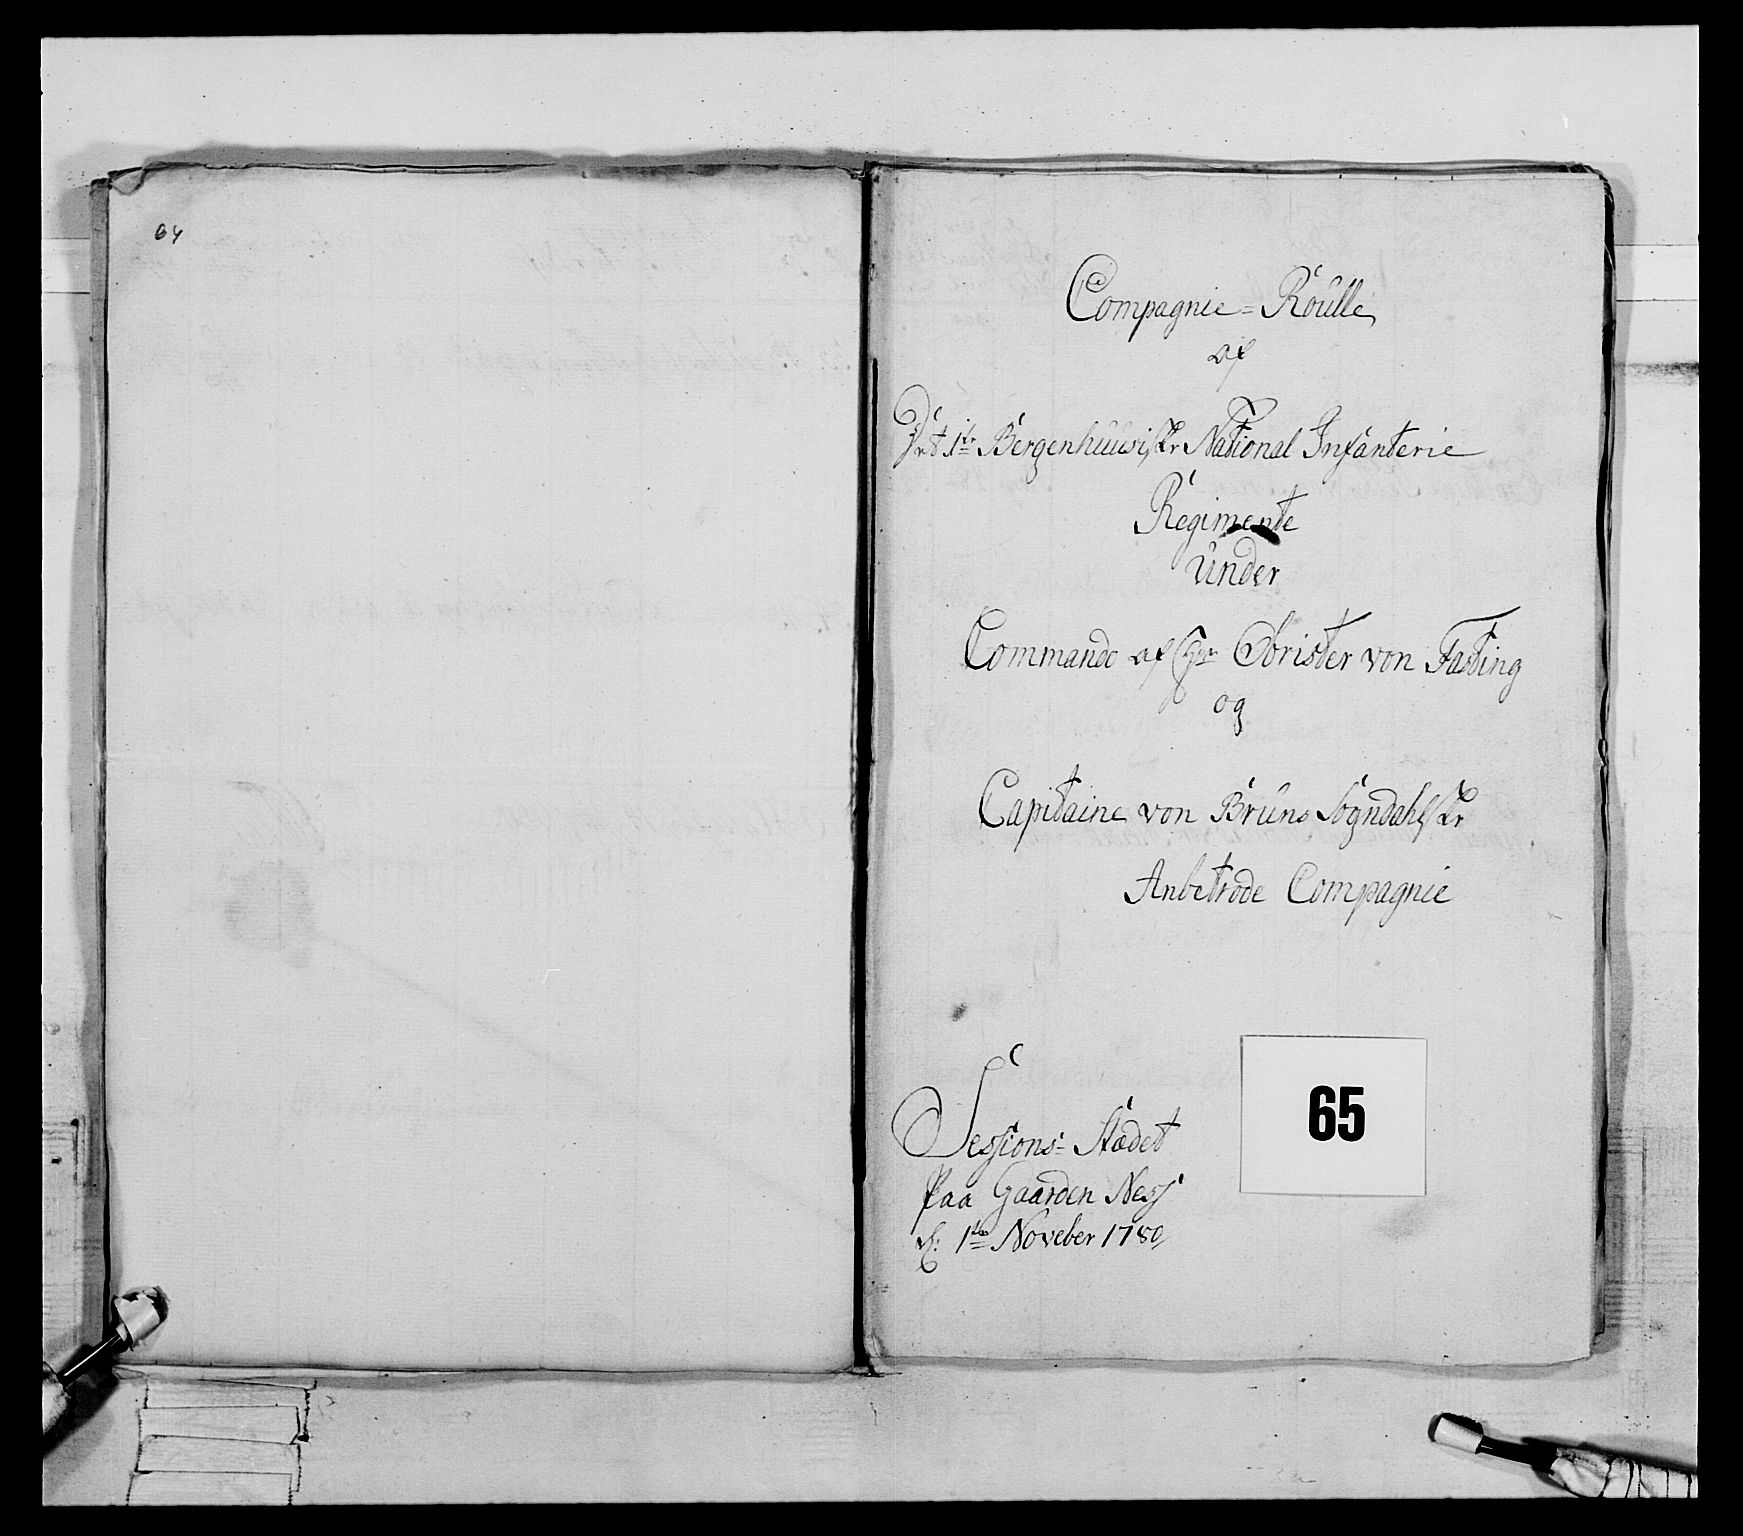 64
Compagnie=Roulle,
af
Det 1te Bergenhuusiske National Infanterie
Regimente
under
Commando af Hr Obrister von Fasting
og
Capitaine von Bruns Sogndahlske
Anbetrode Compagnie
Sessions=Stædet
Paa Gaarden Ness
d: 1te Noveber 1780
65